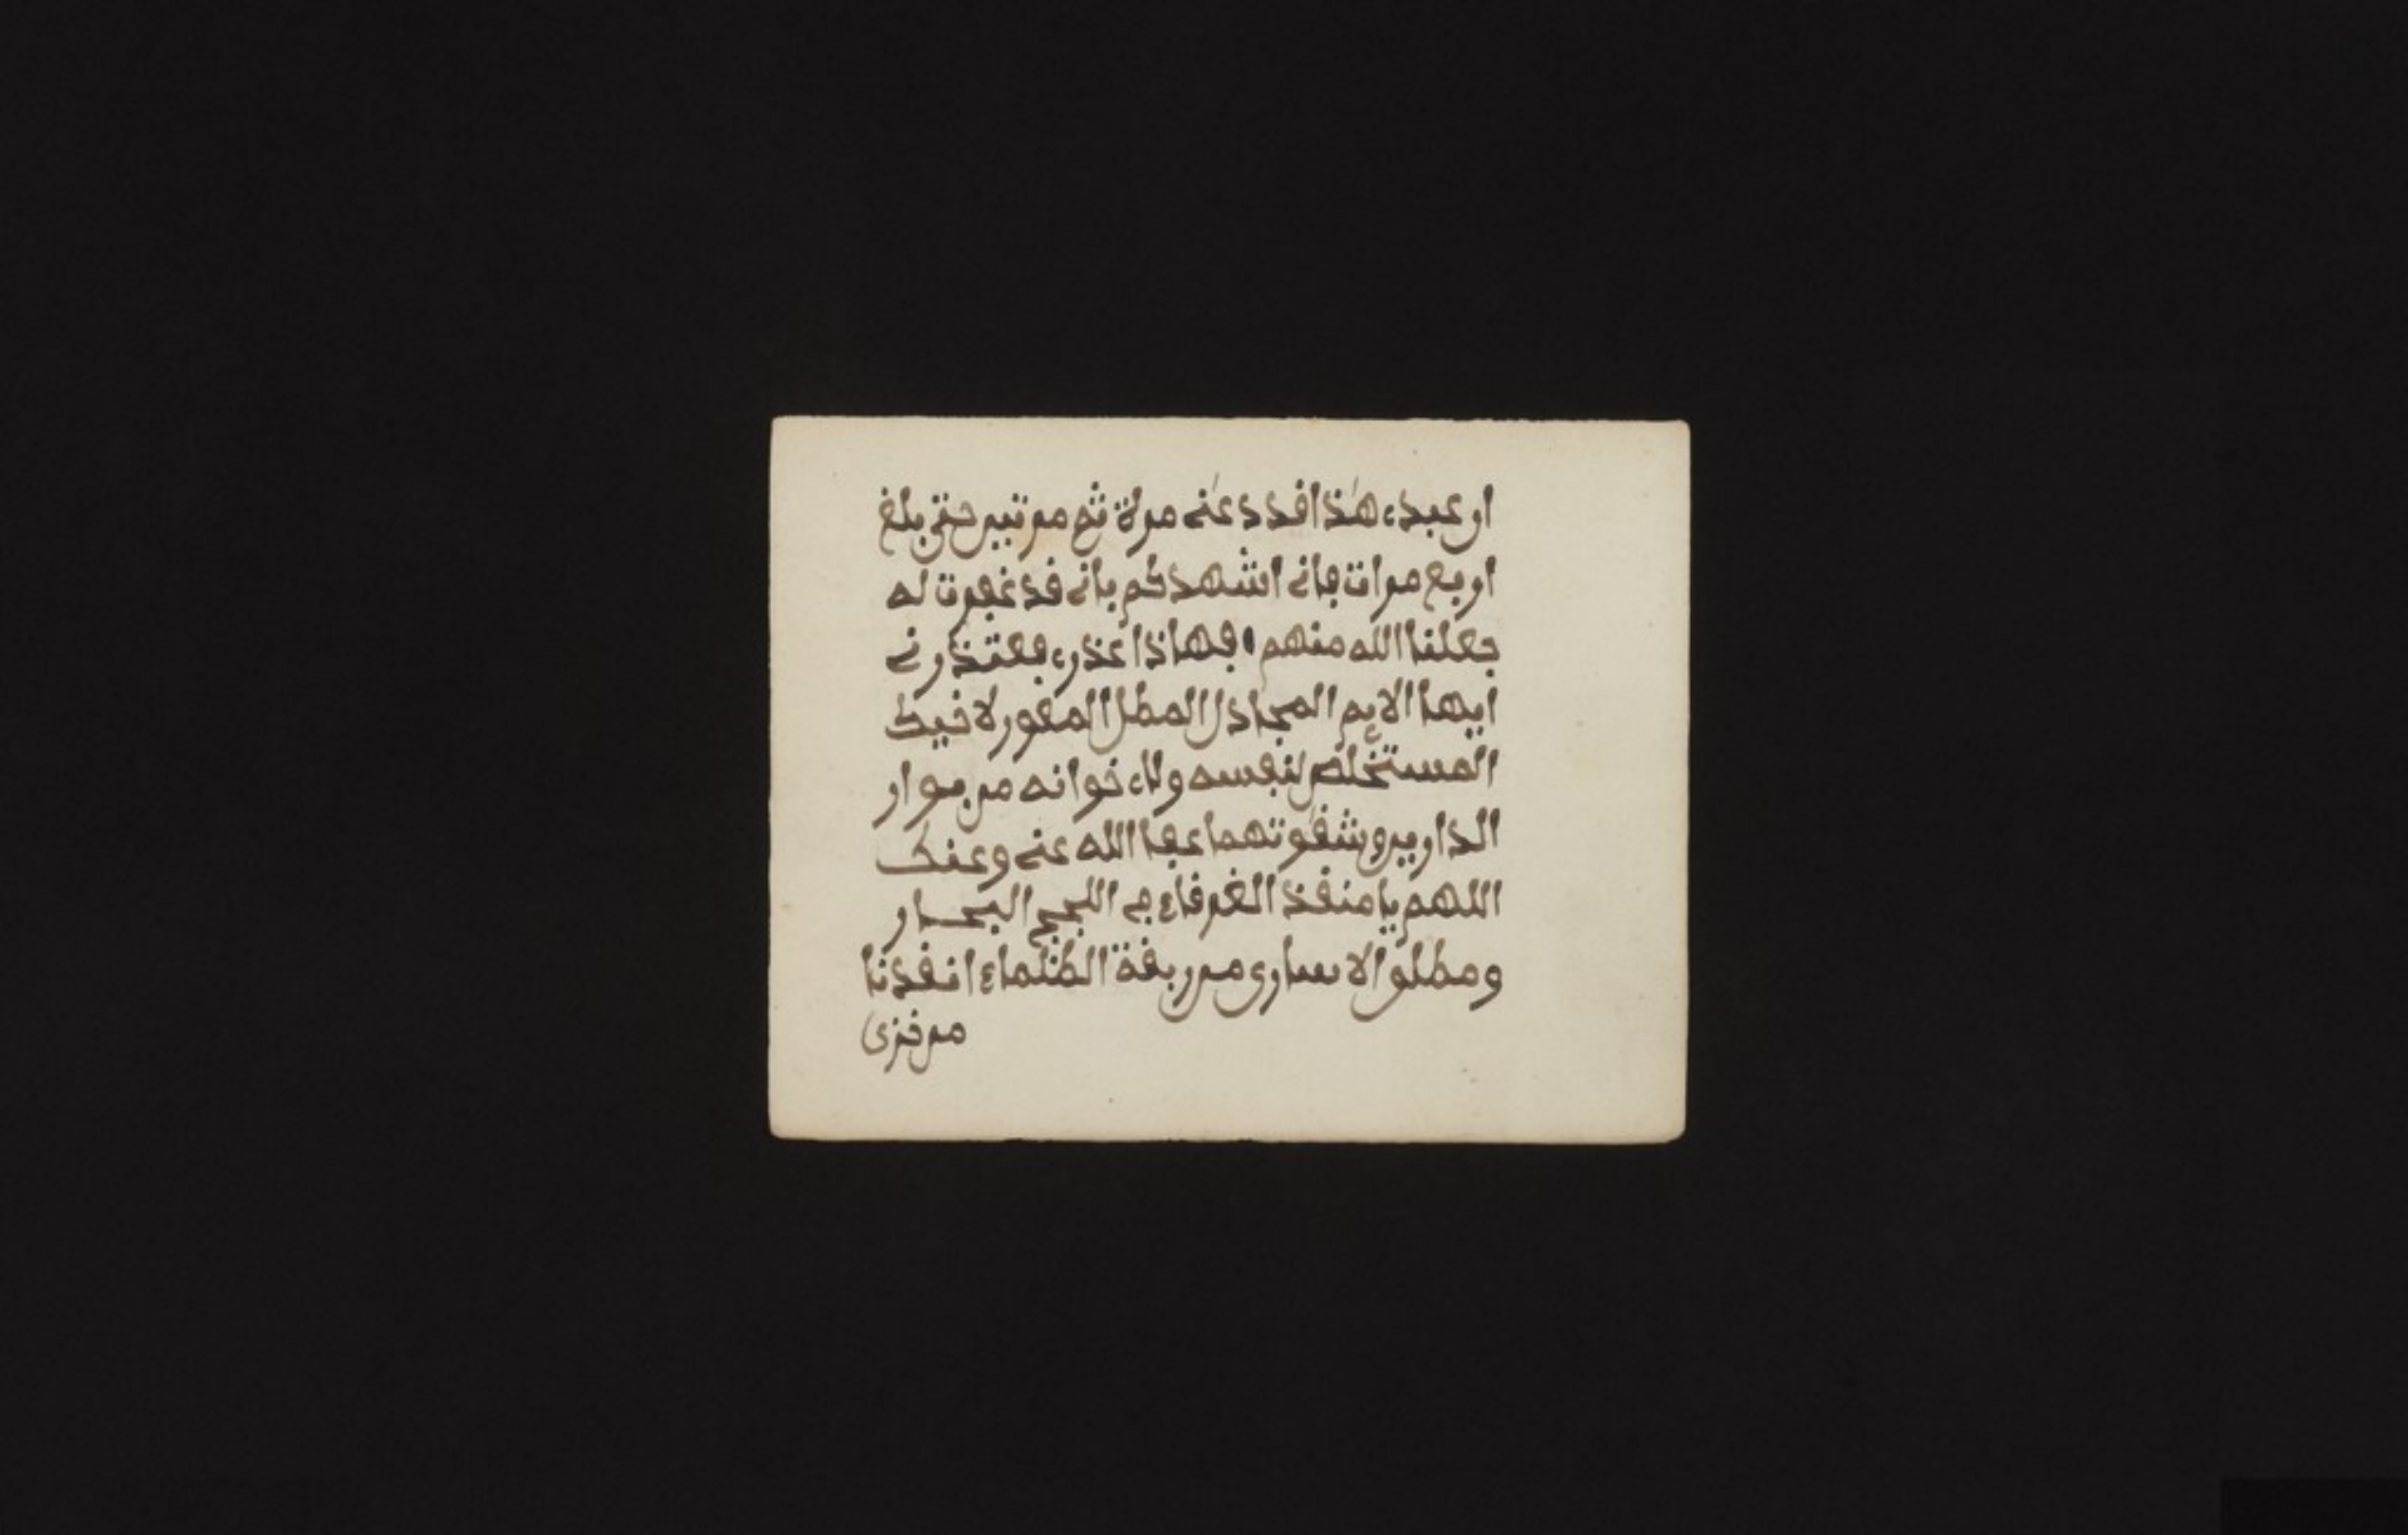 ان عبدى هذا قد دعانى مرة ثم مرتين حتى بلغ
اربع مرات فانى اشهدكم بانى قد غفرت له
جعلنا الله منهم فهاذا عذرى فعتذرنى
ايها الايم المجادل المطل المعور لاخيك
المستخلص لنفسه ولاءخوانه من بوار
الدارين وشقوتهما عفا الله عنى وعنك
اللهم يا منقذ الغرقاء فى اللجج البحار
ومطلق الاسارى من ربقة الظلماء انقذنا
من خزى